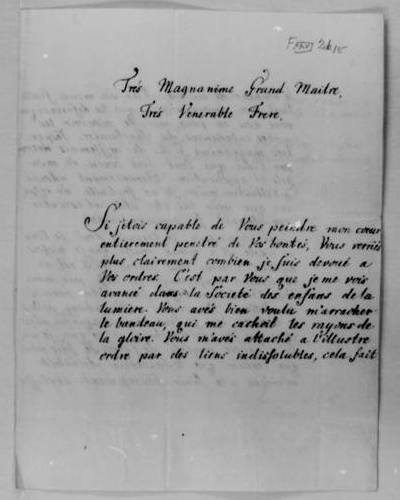 F XXVI 26 15
Très Magnanime Grand Maitre,
Très Venerable Frere,
Si j'etois capable de Vous peindre mon cœur
entierement penetré de Vos bontés, Vous verriés
plus clairement combien je suis devoué a
Vos ordres. C'est par Vous que je me vois
avancé dans la Societé des enfans de la
lumiere. Vous avés bien voulu m'arracher
le bandeau, qui me cachoit les rayons de
la gloire. Vous m'avés attaché a l'illustre
ordre par des liens indissolubles, cela fait